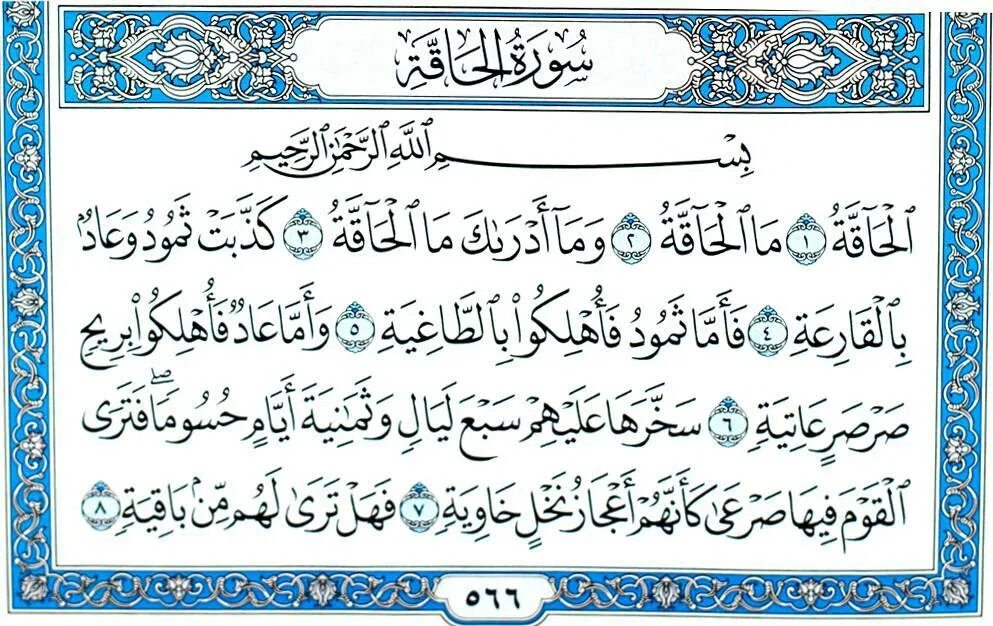 سُورَةُ الْحَاقَّةِ
بِسْمِ ٱللَّهِ ٱلرَّحْمَٰنِ ٱلرَّحِيمِ
ٱلْحَآقَّةُ ١ مَا ٱلْحَآقَّةُ ٢ وَمَآ أَدْرَىٰكَ مَا ٱلْحَآقَّةُ ٣ كَذَّبَتْ ثَمُودُ وَعَادٌۢ
بِٱلْقَارِعَةِ ٤ فَأَمَّا ثَمُودُ فَأُهْلِكُوا۟ بِٱلطَّاغِيَةِ ٥ وَأَمَّا عَادٌ فَأُهْلِكُوا۟ بِرِيحٍ
صَرْصَرٍ عَاتِيَةٍ ٦ سَخَّرَهَا عَلَيْهِمْ سَبْعَ لَيَالٍ وَثَمَٰنِيَةَ أَيَّامٍ حُسُومًاۖ فَتَرَى
ٱلْقَوْمَ فِيهَا صَرْعَىٰ كَأَنَّهُمْ أَعْجَازُ نَخْلٍ خَاوِيَةٍ ٧ فَهَلْ تَرَىٰ لَهُم مِّنۢ بَاقِيَةٍ ٨
٥٦٦